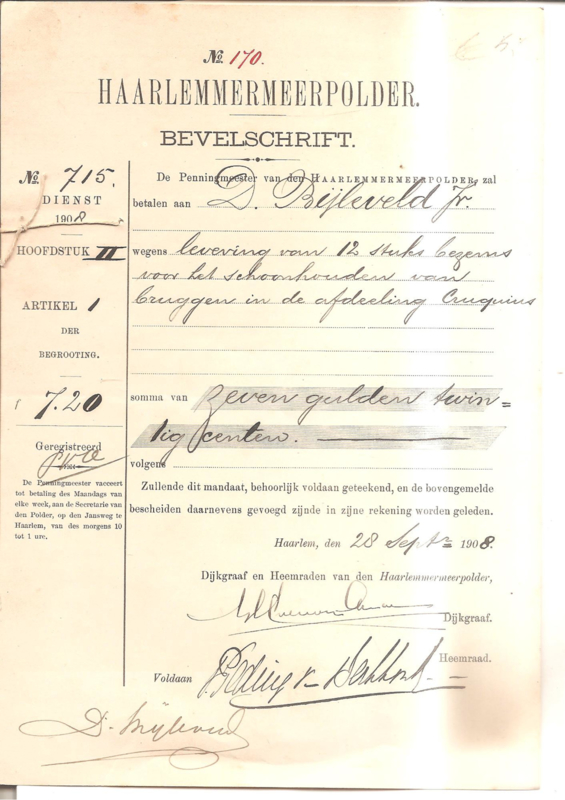 № 170.
HAARLEMMERMEERPOLDER.
BEVELSCHRIFT.
№ 715.
DIENST
1908
HOOFDSTUK II
ARTIKEL 1
DER
BEGROOTING.
f 7.20
Geregistreerd
De Penningmeester vaceert
tot betaling des Maandags van
elke week, aan de Secretarie van
den Polder, op den Jansweg te
Haarlem, van des morgens 10
tot 1 ure.
De Penningmeester van den HAARLEMMERMEERPOLDER, zal
betalen aan D. Bijleveld Jr.
wegens levering van 12 stuks bezems
voor het schoonhouden van
bruggen in de afdeeling Cruquius
somma van zeven gulden twin=
tig centen.
volgens
Zullende dit mandaat, behoorlijk voldaan geteekend, en de bovengemelde
bescheiden daarnevens gevoegd zijnde in zijne rekening worden geleden.
Haarlem, den 28 Septr 1908.
Dijkgraaf en Heemraden van den Haarlemmermeerpolder,
Dijkgraaf.
Heemraad.
Voldaan
D. Bijleveld